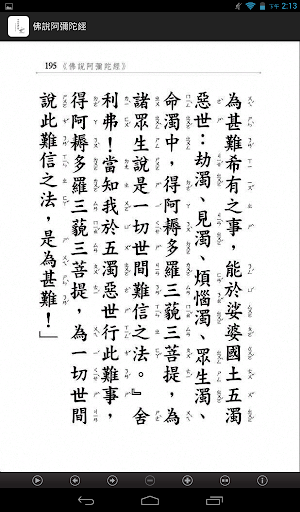 下午 2:13
佛說阿彌陀經
195 《佛說阿彌陀經》
為甚難希有之事，能於娑婆國土五濁
惡世：劫濁、見濁、煩惱濁、眾生濁、
命濁中，得阿耨多羅三藐三菩提，為
諸眾生說是一切世間難信之法。』舍
利弗！當知我於五濁惡世行此難事，
得阿耨多羅三藐三菩提，為一切世間
說此難信之法，是為甚難！」